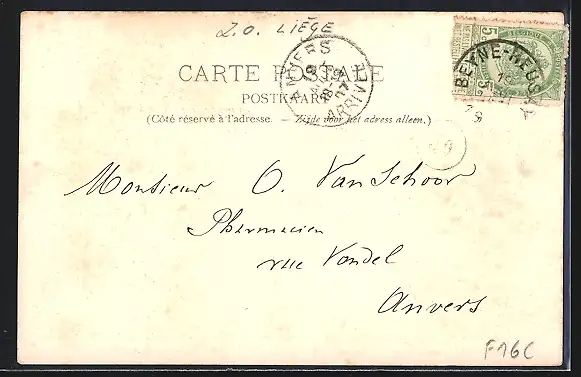 Z.O. LIÉGE
CARTE POSTALE
POSTKAART
(Côté réservé à l'adresse. — Zijde voor het adress alleen.)
ANVERS
ARRIVÉE
BELGIQUE
5
BEYNE-HEUSAY
Monsieur O. Van Schoor
Pharmacien
rue Vondel
Anvers
F16C